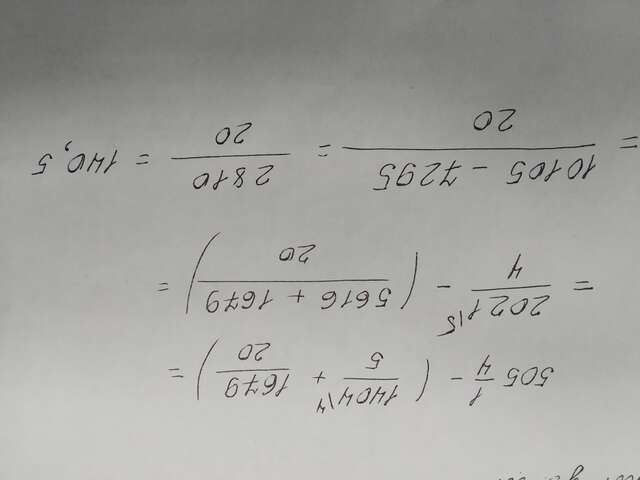 505 1/4 - ( 1404\4 / 5 + 1679 / 20 ) =
= 2021\5 / 4 - ( 5616 + 1679 / 20 ) =
= 10105 - 7295 / 20 = 2810 / 20 = 140,5